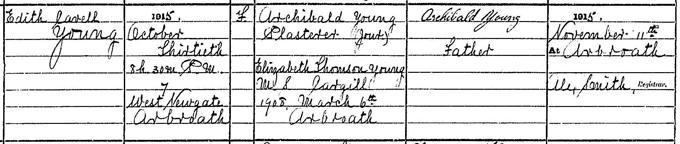 Edith Cavell
Young
1915.
October
Thirtieth
8 h. 30 m. P.M.
7
West Newgate
Arbroath
F
Archibald Young
Plasterer (Jour)
Elizabeth Thomson Young
M.S. Cargill
1908, March 6th
Arbroath
Archibald Young
Father
1915,
November 11th
At Arbroath
Alex. Smith, Registrar.